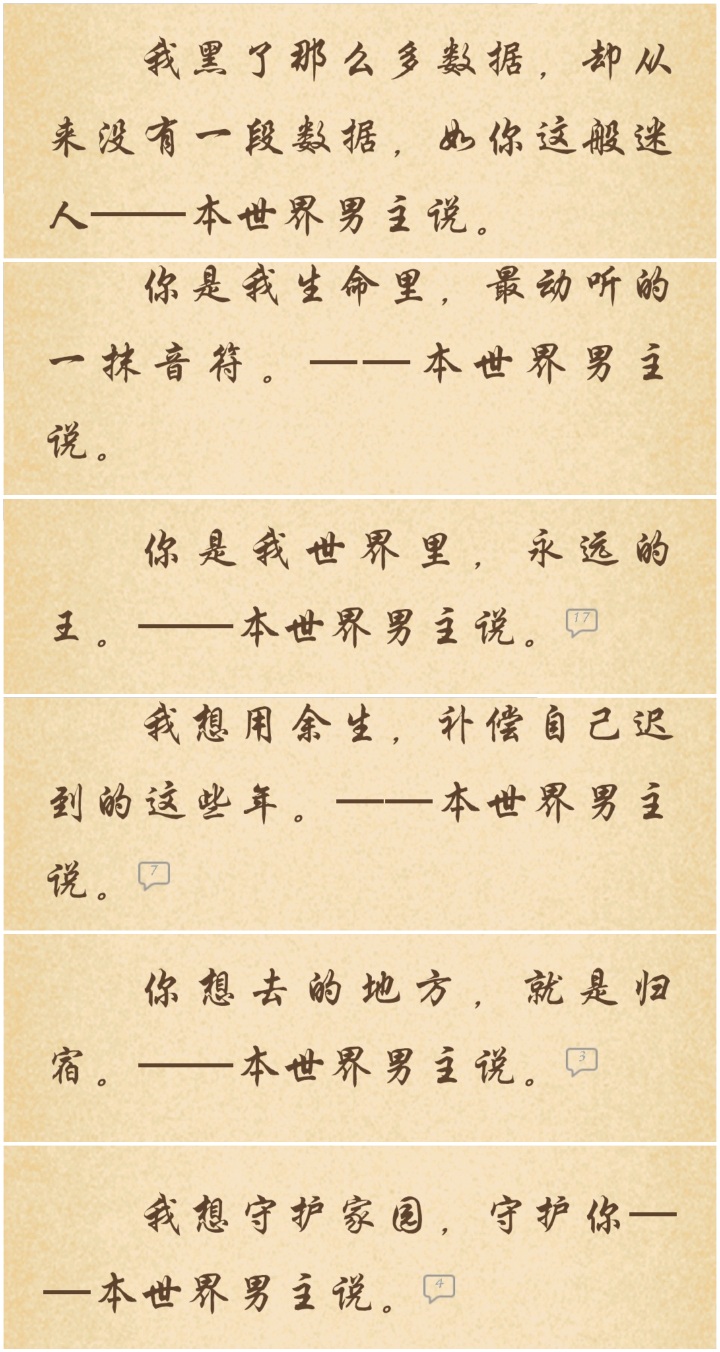 我黑了那么多数据，却从
来没有一段数据，如你这般迷
人——本世界男主说。
你是我生命里，最动听的
一抹音符。——本世界男主
说。
你是我世界里，永远的
王。——本世界男主说。17
我想用余生，补偿自己迟
到的这些年。——本世界男主
说。7
你想去的地方，就是归
宿。——本世界男主说。3
我想守护家园，守护你—
—本世界男主说。4